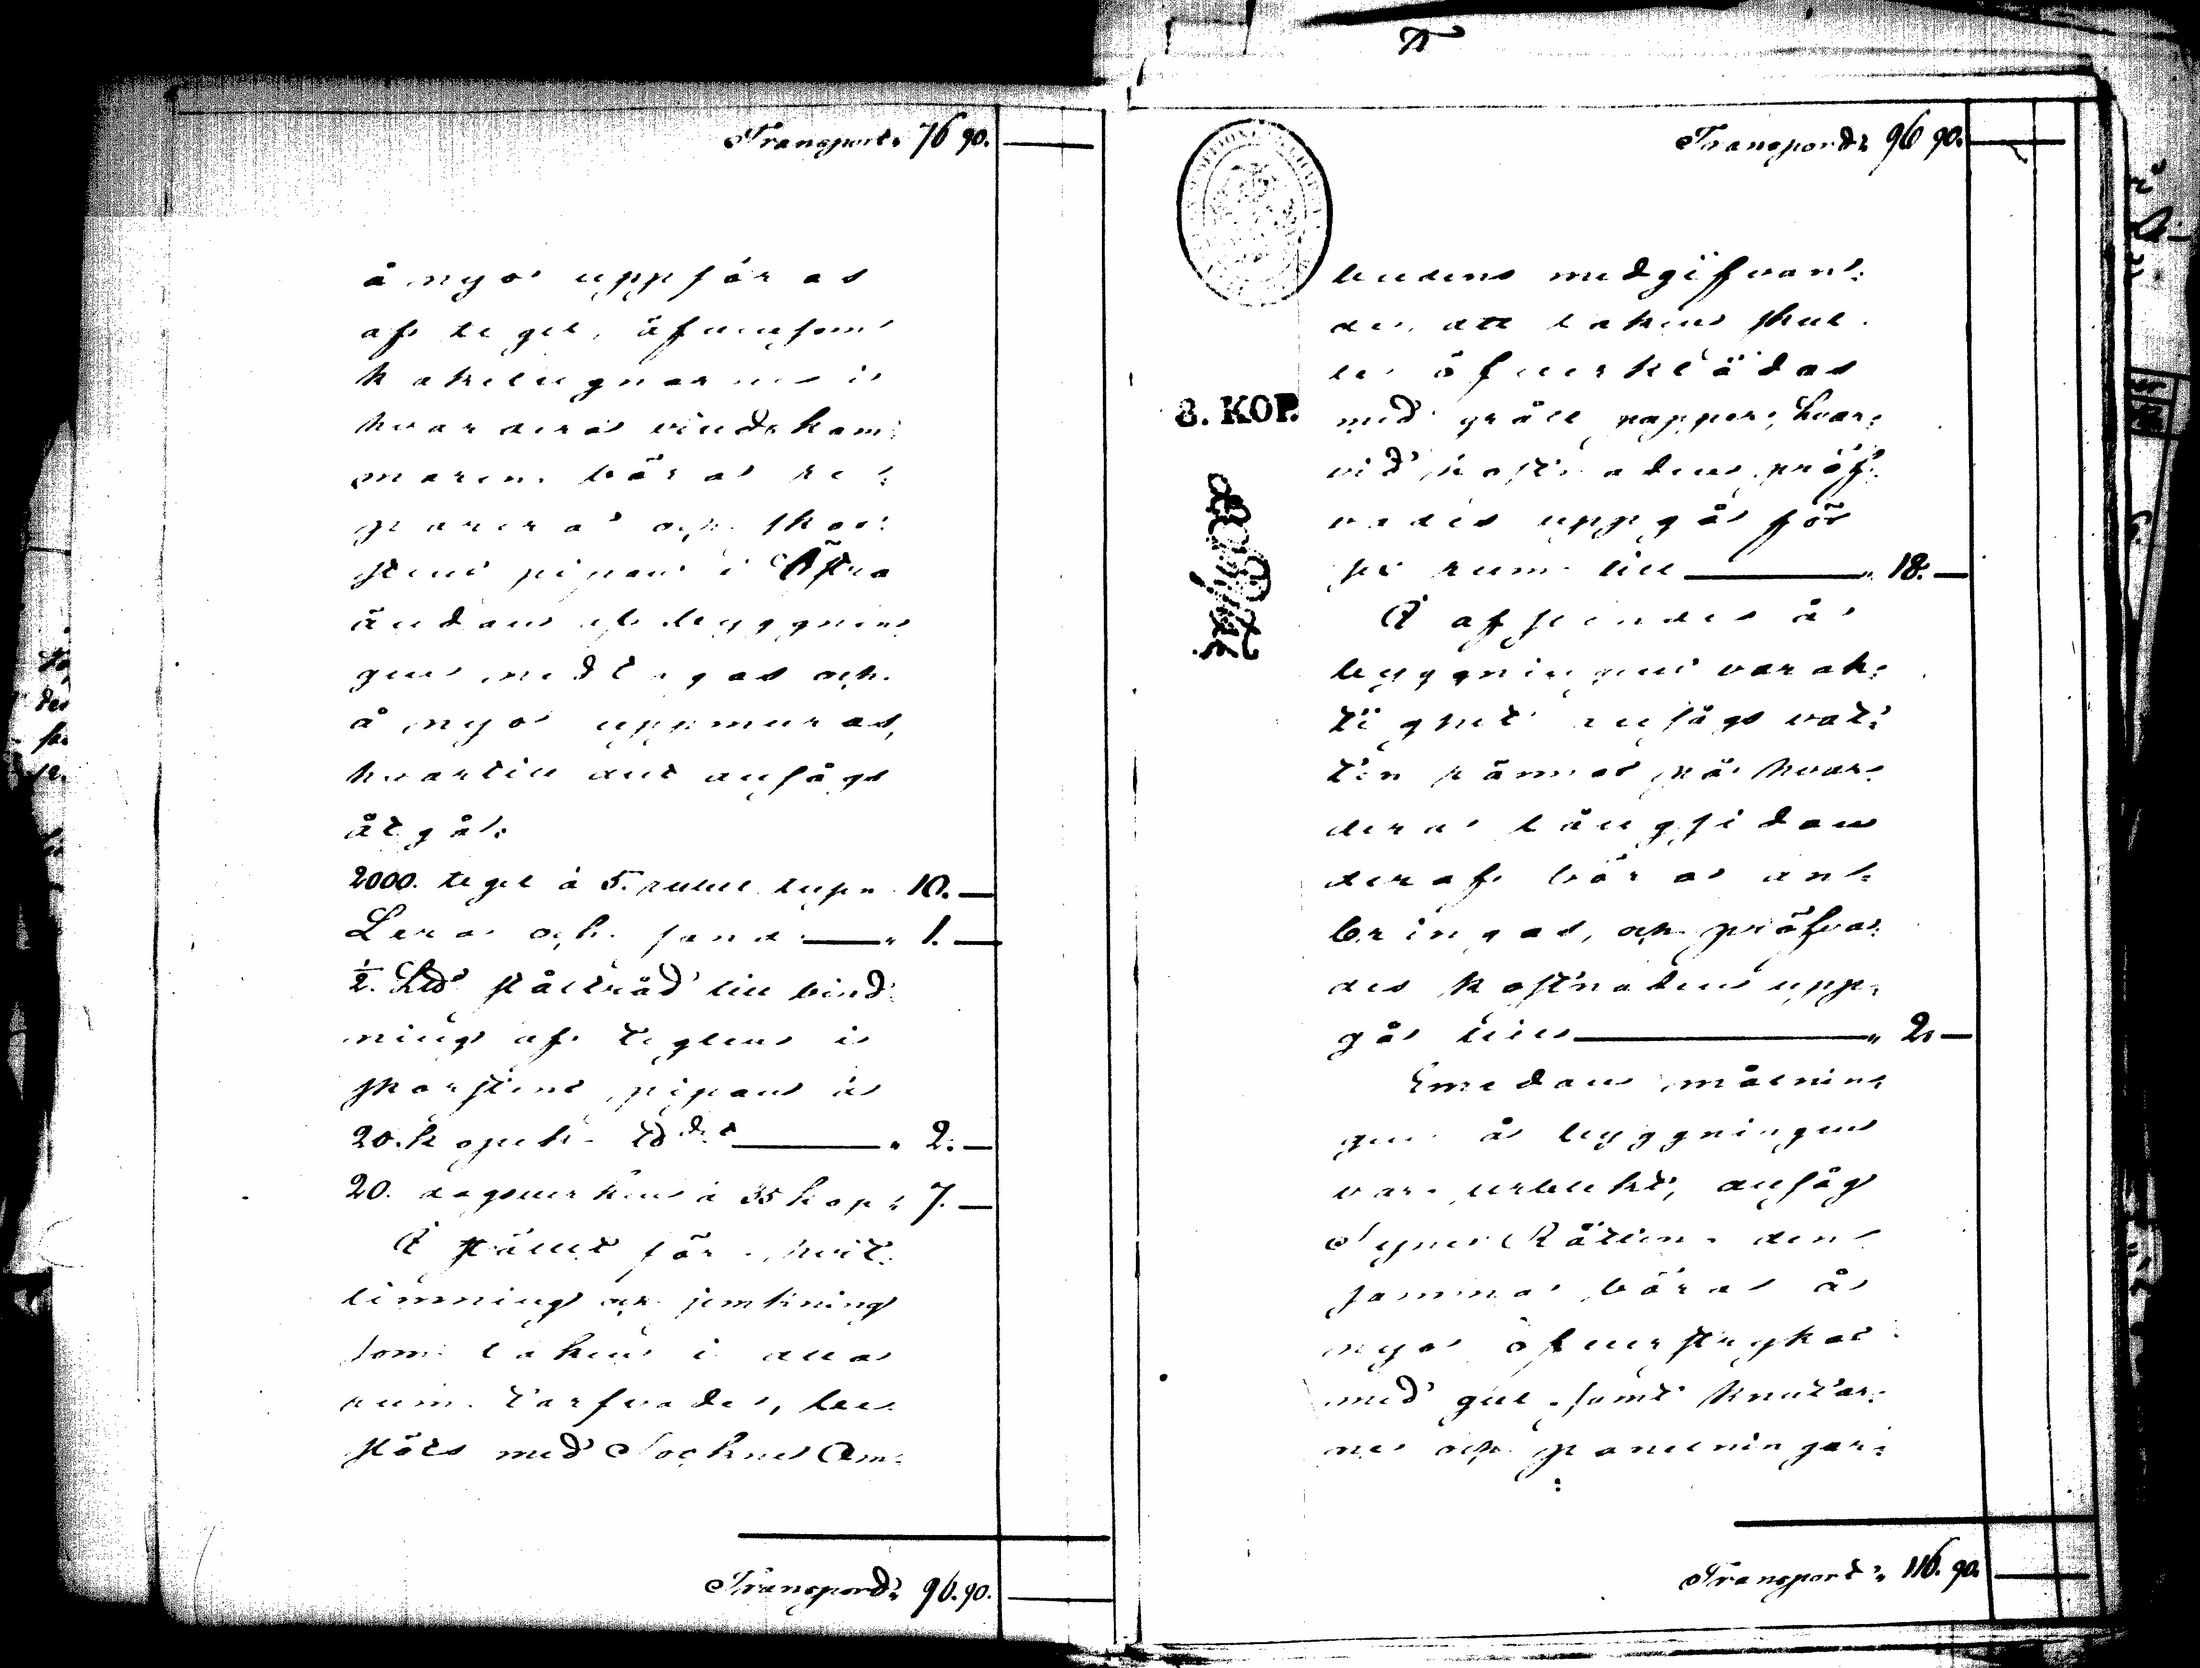 Transport 76 90.
å nyo uppföras
af tegel, äfvensom
kakelugnarne i
hvardera vindskam-
maren böra re-
pareras och skor-
stens pipan i Östra
ändan af byggnin-
gen nedtagas och
å nyo uppmuras,
hvartill ansågs
åtgå:
2000. tegel à 5. rubel 10.—
Lera och sand — " 1.—
½. L℔ ståltråd till bind-
ning af teglen i
skorstens pipan à
20. kopek ℔det — " 2.—
20. dagsverken à 35 kop " 7.—
I stället för hvit-
limning och jemkning
som taken i alla
rum tarfvade, be-
slöts med Sockne Om-
Transport 96.90.
Transport 96 90.
8. KOP.
budens medgifvan-
de, att taken skul-
le öfverklädas
med grått papper, hvar-
vid kostnaden pröf-
vades uppgå för
sex rum till — " 18.—
I afseende å
byggningens varak-
tighet ansågs vat-
ten rännor på hvar-
dera långsidan
deraf böra an-
bringas, och pröfva-
des kostnaden upp-
gå till — " 2.—
Emedan målnin-
gen å byggningen
var urblekt, ansåg
Syne Rätten den-
samma böra å
nyo öfverstrykas
med gul samt knutar-
ne och panelningar-
Transport " 116. 90.